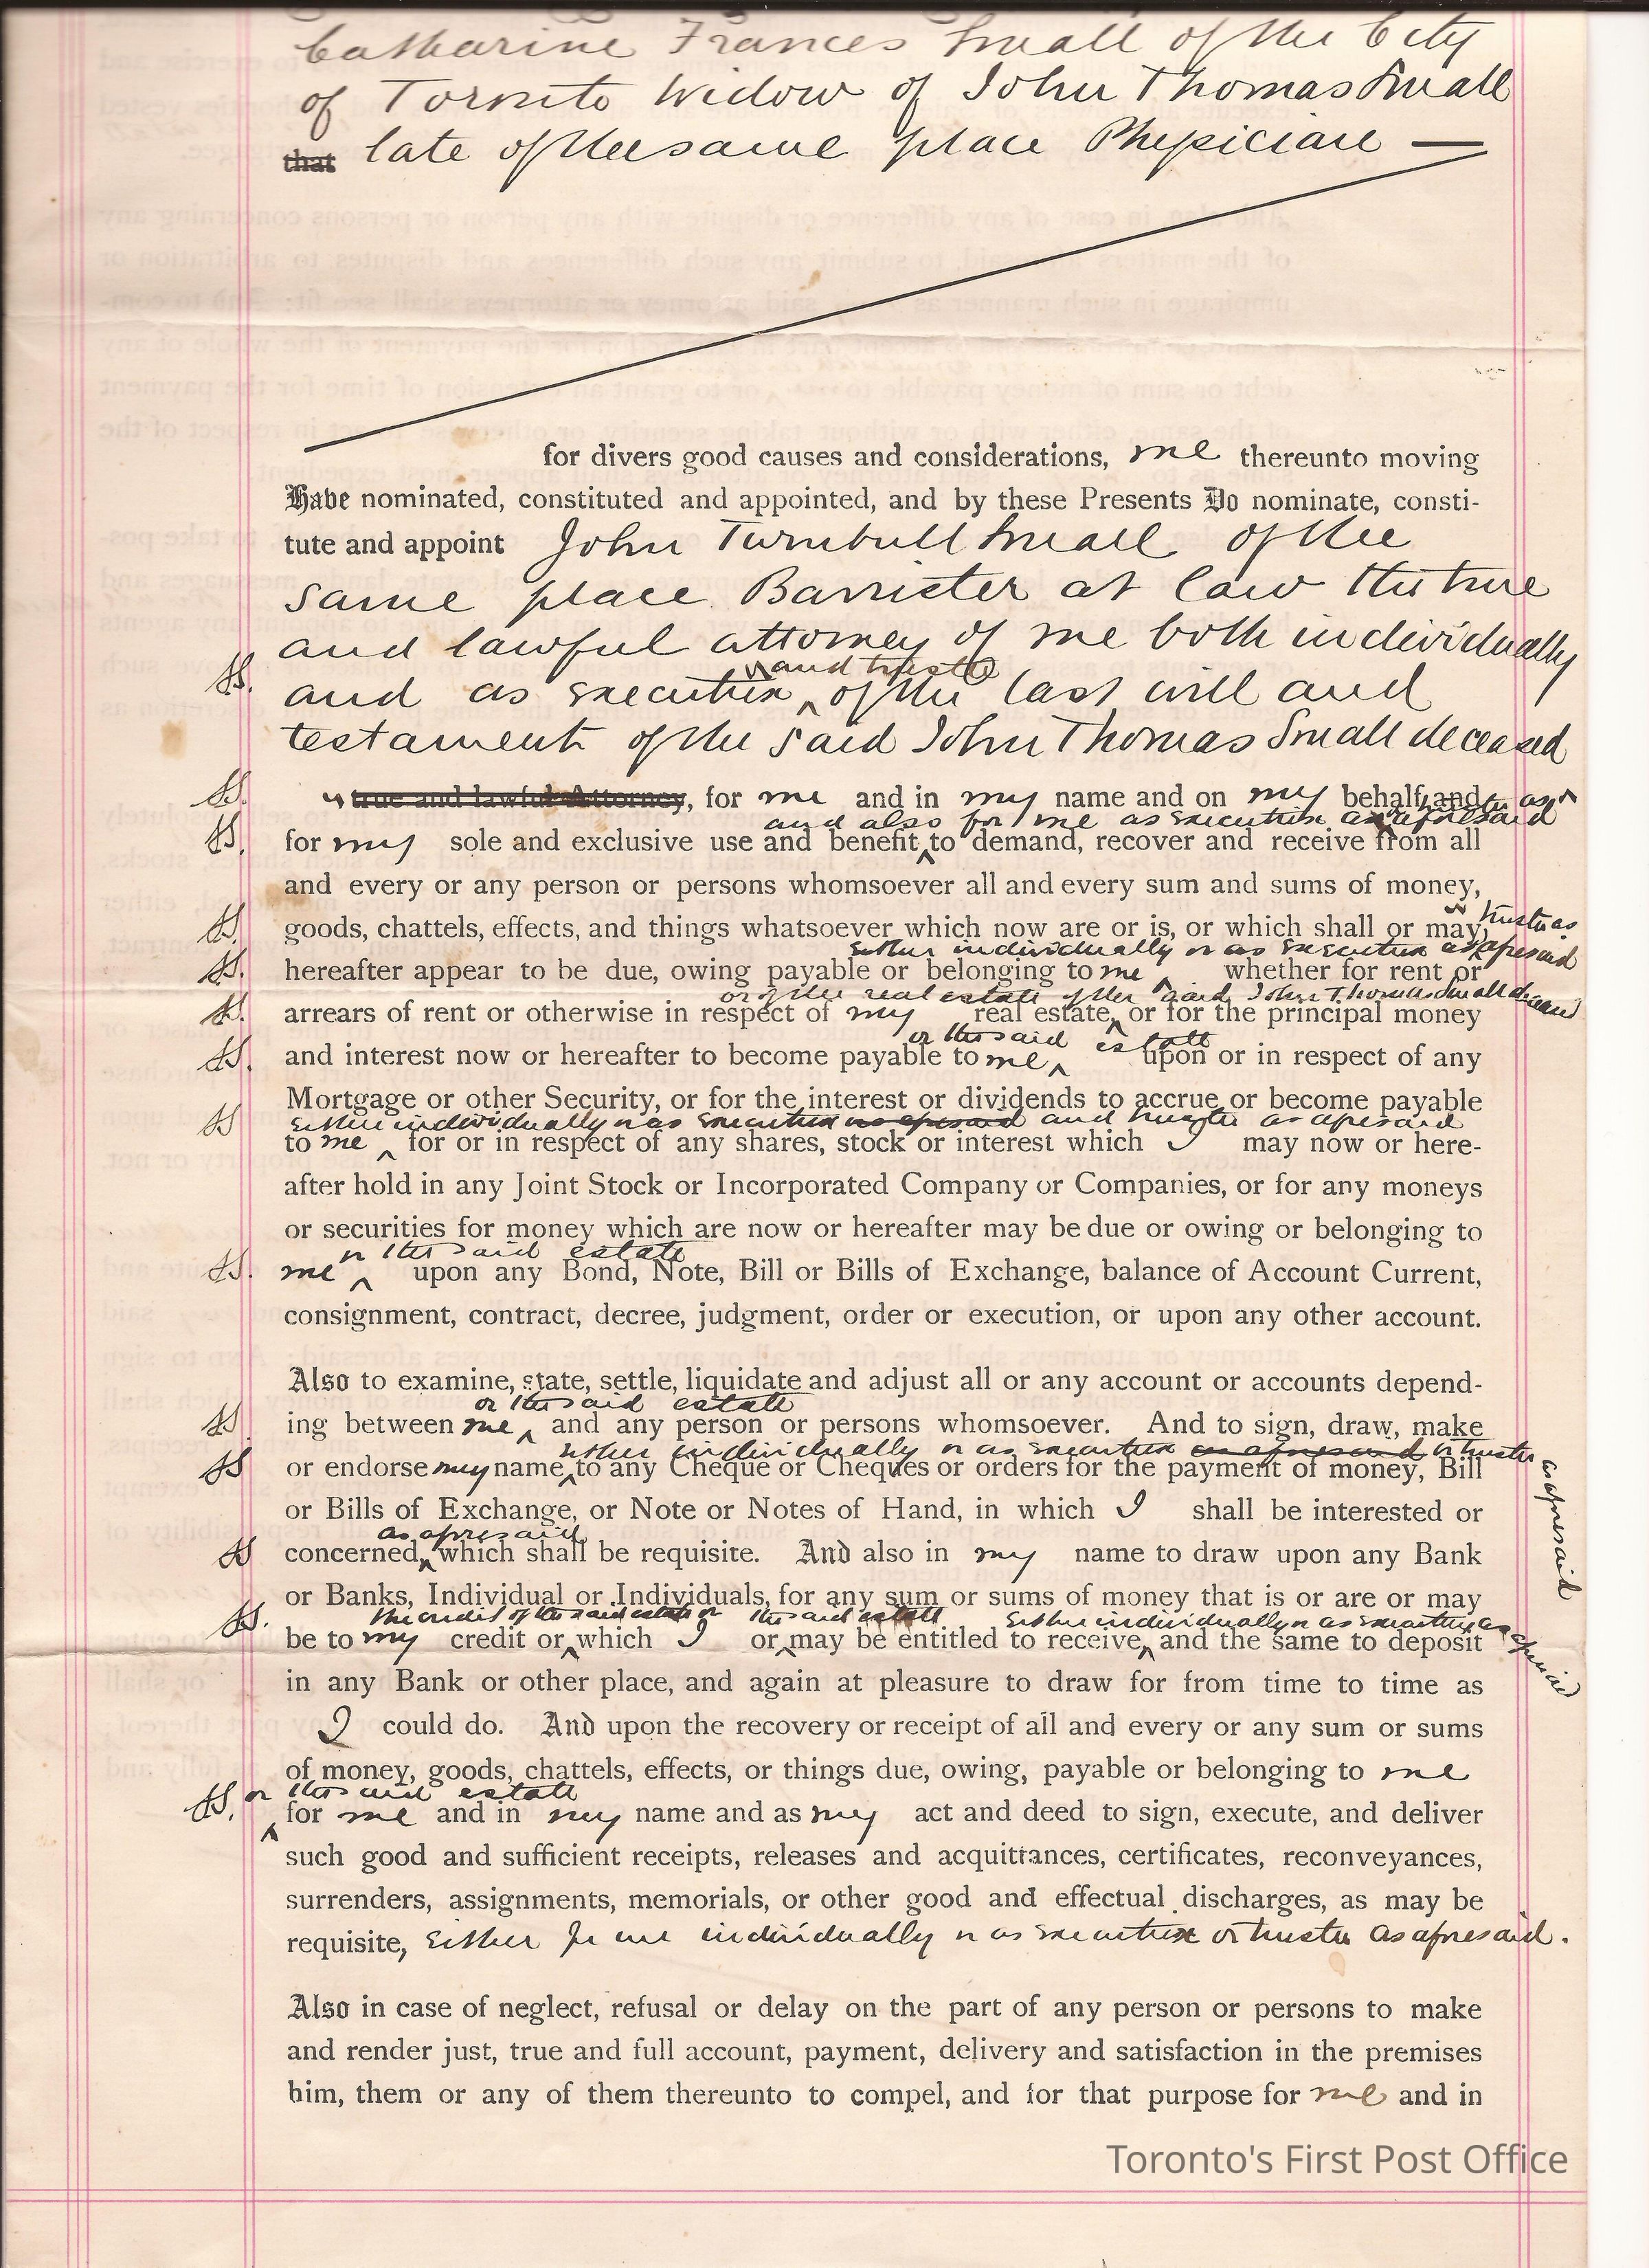 Catharine Frances Small of the City
of Toronto Widow of John Thomas Small
that late of the same place Physician —
for divers good causes and considerations, me thereunto moving
Have nominated, constituted and appointed, and by these Presents Do nominate, consti-
tute and appoint John Turnbull Small of the
same place Barrister at law the true
and lawful attorney of me both individually
and trustee
and as executrix of the last will and
testament of the said John Thomas Small deceased
true and lawful Attorney, for me and in my name and on my behalf and
and also for me as executrix and trustee as aforesaid
for my sole and exclusive use and benefit to demand, recover and receive from all
and every or any person or persons whomsoever all and every sum and sums of money,
goods, chattels, effects, and things whatsoever which now are or is, or which shall or may,
either individually or as executrix or trustee as aforesaid
hereafter appear to be due, owing payable or belonging to me whether for rent or
or of the real estate of the said John Thomas Small deceased
arrears of rent or otherwise in respect of my real estate, or for the principal money
or the said estate
and interest now or hereafter to become payable to me upon or in respect of any
Mortgage or other Security, or for the interest or dividends to accrue or become payable
either individually or as executrix as aforesaid and trustee as aforesaid
to me for or in respect of any shares, stock or interest which I may now or here-
after hold in any Joint Stock or Incorporated Company or Companies, or for any moneys
or securities for money which are now or hereafter may be due or owing or belonging to
or the said estate
me upon any Bond, Note, Bill or Bills of Exchange, balance of Account Current,
consignment, contract, decree, judgment, order or execution, or upon any other account.
Also to examine, state, settle, liquidate and adjust all or any account or accounts depend-
or the said estate
ing between me, and any person or persons whomsoever. And to sign, draw, make
either individually or as executrix as aforesaid or trustee as aforesaid
or endorse my name to any Cheque or Cheques or orders for the payment of money, Bill
or Bills of Exchange, or Note or Notes of Hand, in which I shall be interested or
as aforesaid
concerned, which shall be requisite. And also in my name to draw upon any Bank
or Banks, Individual or Individuals, for any sum or sums of money that is or are or may
the credit of the said estate or the said estate either individually or as executrix as aforesaid
be to my credit or which I or may be entitled to receive, and the same to deposit
in any Bank or other place, and again at pleasure to draw for from time to time as
I could do. And upon the recovery or receipt of all and every or any sum or sums
of money, goods, chattels, effects, or things due, owing, payable or belonging to me
or the said estate
for me and in my name and as my act and deed to sign, execute, and deliver
such good and sufficient receipts, releases and acquittances, certificates, reconveyances,
surrenders, assignments, memorials, or other good and effectual discharges, as may be
requisite, either for me individually or as executrix or trustee as aforesaid.
Also in case of neglect, refusal or delay on the part of any person or persons to make
and render just, true and full account, payment, delivery and satisfaction in the premises
him, them or any of them thereunto to compel, and for that purpose for me and in
Toronto's First Post Office